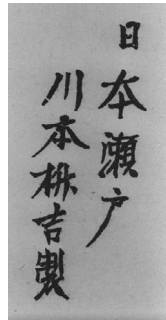 日本瀬戸
川本桝吉製